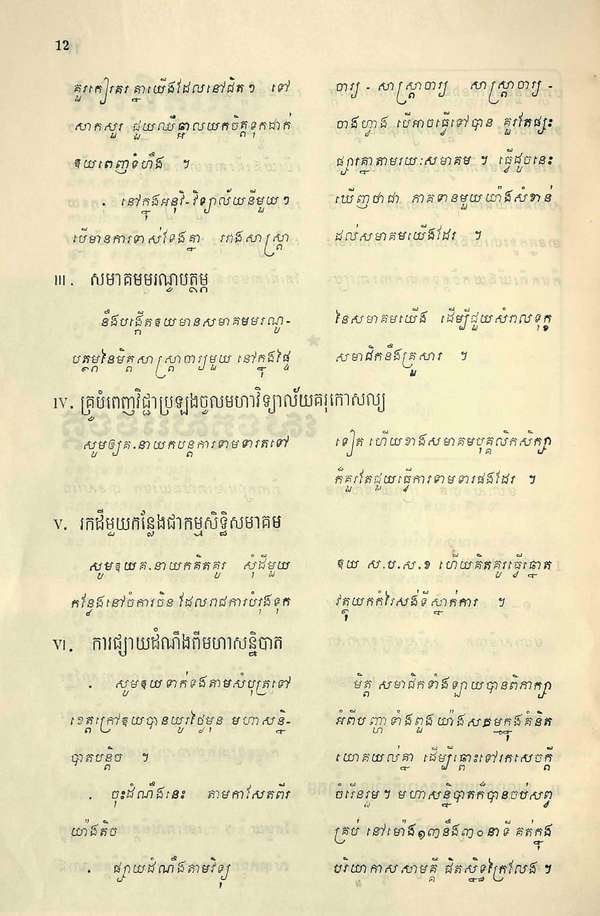 12
គួរគៀរគរ គ្នាយើងដែលនៅជិតៗ ទៅ
សាកសួរ ជួយឈឺឆ្អាលយកចិត្តទុកដាក់
ឱយពេញទំហឹង ។
. នៅក្នុងអនុវិ-វិទ្យាល័យនីមួយៗ
បើមានការទាស់ទែងគ្នា រវាងសាស្ត្រា
ចារ្យ - សាស្ត្រាចារ្យ សាស្ត្រាចារ្យ-
ចាងហ្វាង បើអាចធ្វើទៅបាន គួរតែផ្សះ
ផ្សារគ្នាតាមរយៈសមាគម ។ ធ្វើដូចនេះ
ឃើញថាជា ភាគទានមួយយ៉ាងសំខាន់
ដល់សមាគមយើងដែរ ។
III. សមាគមមរណូបត្ថម្ភ
នឹងបង្កើតឱយមានសមាគមមរណូ-
បត្ថម្ភនៃមិត្តសាស្ត្រាចារ្យមួយ នៅក្នុងផ្ទៃ
នៃសមាគមយើង ដើម្បីជួយសំរាលទុក្ខ
សមាជិកនឹងគ្រួសារ ។
IV. គ្រូបំពេញវិជ្ជាប្រឡងចូលមហាវិទ្យាល័យគរុកោសល្យ
សូមឲ្យគ.នាយកបន្តការទាមទារតទៅ
ទៀត ហើយខាងសមាគមបុគ្គលិកសិក្សា
ក៏គួរតែជួយធ្វើការទាមទារផងដែរ ។
V. រកដីមួយកន្លែងជាកម្មសិទ្ធិសមាគម
សូមឱយគ.នាយកគិតគូរ សុំដីមួយ
កន្លែងនៅចំការចិន ដែលរាជការបំរុងទុក
ឱយ ស.ប.ស.ខ ហើយគិតគូរធ្វើឆ្នោត
វត្ថុយកកំរៃសង់ទីស្នាក់ការ ។
VI. ការផ្សាយដំណឹងពីមហាសន្និបាត
. សូមឱយទាក់ទងតាមសំបុត្រទៅ
ខេត្តក្រៅឱយបានយូរថ្ងៃមុន មហាសន្និ-
បាតបន្តិច ។
. ចុះដំណឹងនេះ តាមកាសែតពីរ
យ៉ាងតិច
. ផ្សាយដំណឹងតាមវិទ្យុ
មិត្ត សមាជិកទាំងឡាយបានពិភាក្សា
អំពីបញ្ហាទាំងពួងយ៉ាងសមរម្យក្នុងគំនិត
យោគយល់គ្នា ដើម្បីឆ្ពោះទៅរកសេចក្ដី
ចំរើនរួម។ មហាសន្និបាតក៏បានចប់សព្វ
គ្រប់ នៅម៉ោង១៣នឹង៣០នាទី គត់ក្នុង
បរិយាកាសសាមគ្គី ជិតស្និទ្ធក្រៃលែង ។